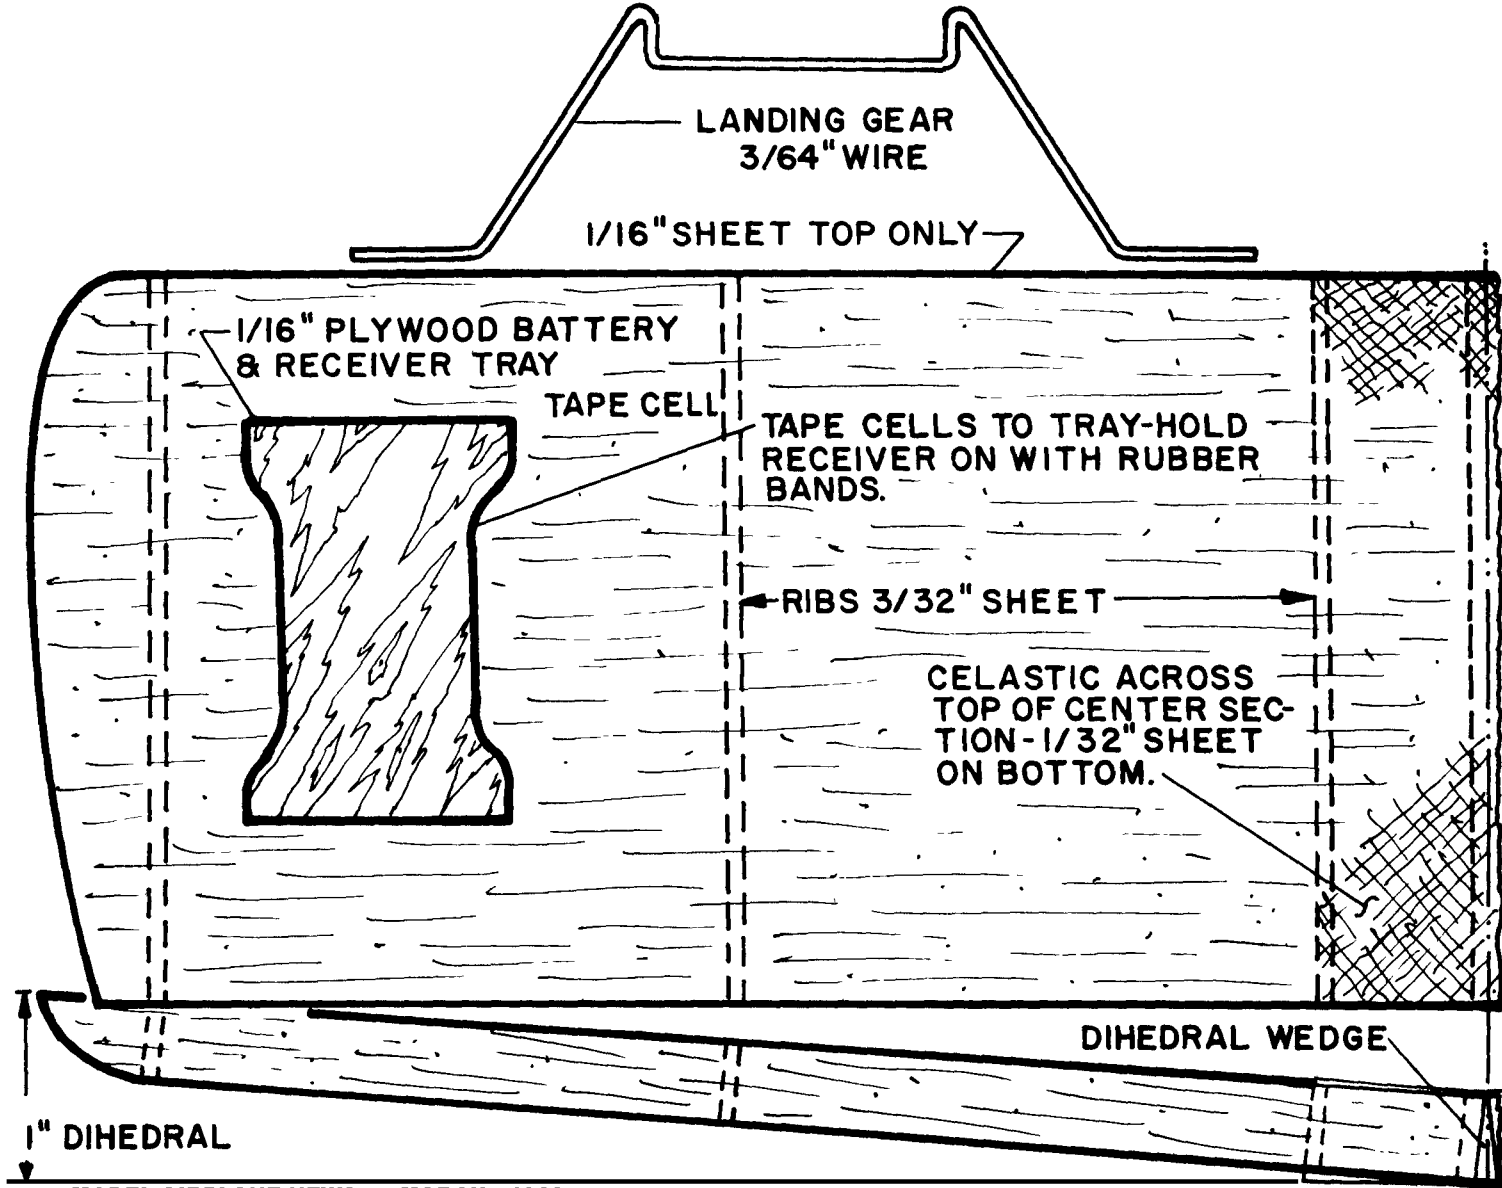 LANDING GEAR
3/64" WIRE
1/16" SHEET TOP ONLY
1/16" PLYWOOD BATTERY
& RECEIVER TRAY
TAPE CELL
TAPE CELLS TO TRAY-HOLD
RECEIVER ON WITH RUBBER
BANDS.
RIBS 3/32" SHEET
CELASTIC ACROSS
TOP OF CENTER SEC-
TION-1/32" SHEET
ON BOTTOM.
DIHEDRAL WEDGE
1" DIHEDRAL